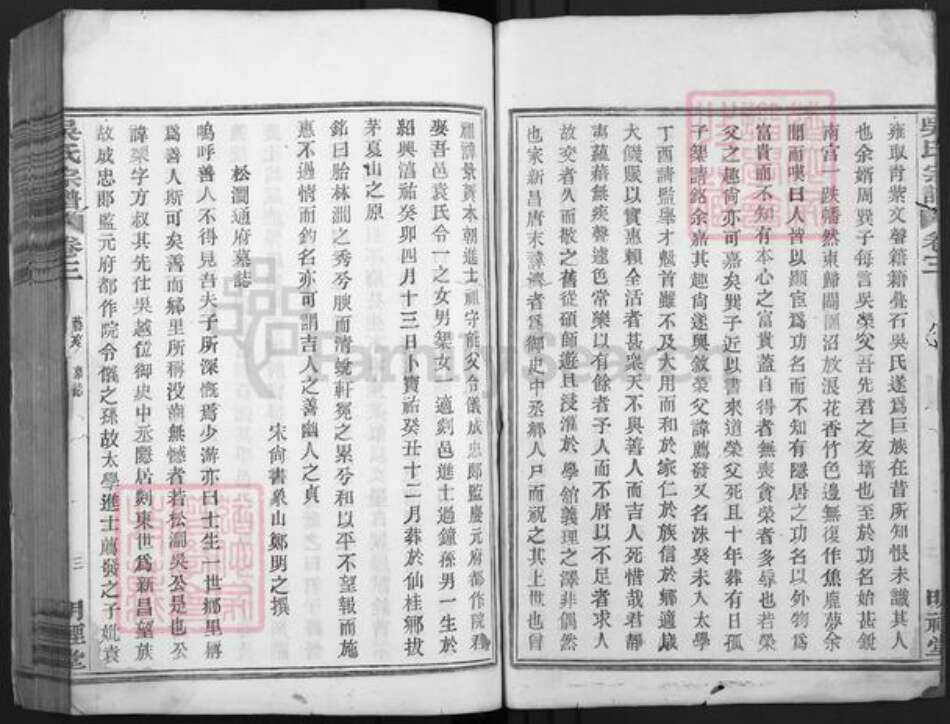 雍取青紫文聲籍籍疊石吳氏遂爲巨族在昔所知恨未識其人
也余婿周巽子每言吳榮父吾先君之友壻也至於功名始甚銳
南宫一跌幡然東歸闢圃沼放浪花香竹色邊無復作焦鹿夢余
聞而嘆曰人皆以顯宦爲功名而不知有隱居之功名以外物爲
富貴而不知有本心之富貴蓋自得者無喪貪榮者多辱也若榮
父之趣尙亦可嘉矣巽子近以書來道榮父死且十年葬有日孤
子榘請銘余嘉其趣尙遂與敘榮父諱薦發又名洙癸未入太學
丁酉請監舉才魁首難不及大用而和於家仁於族信於鄉適歲
大饑賑以實惠賴全活者甚衆天不與善人而吉人死惜哉君靜
專蘊藉無疾聲遽色常樂以有餘者予人而不屑以不足者求人
故交者久而敬之舊從碩師遊且浸淮於學館義理之澤非偶然
也家新昌唐末諱濟者爲御史中丞鄉人尸而祝之其上世也曾
祖諱景賀本朝進士祖守能父令儀成忠郎監慶元府都作院君
娶吾邑袁氏令一之女男榘女一適剡邑進士過鐘孫男一生於
紹興淳祐癸卯四月十三日卜寶祐癸丑十二月葬於仙桂鄉拔
茅夏山之原
銘曰胎林澗之秀兮腴而清蛻軒冕之累兮和以平不望報而施
惠不過情而釣名亦可謂吉人之善幽人之貞
宋尙書象山鄭明之撰
松澗通府墓誌
嗚呼善人不得見吾夫子所深慨焉少游亦曰士生一世鄉里稱
爲善人斯可矣善而鄉里所稱没齒無憾者若松澗吳公是也公
諱榘字方叔其先仕吳越位御史中丞隱居剡東世爲新昌望族
故成忠郎監元府都作院令儀之孫故太學進士薦發之子妣袁
吳氏宗譜
卷之三
墓誌
三
明禋堂
FamilySearch